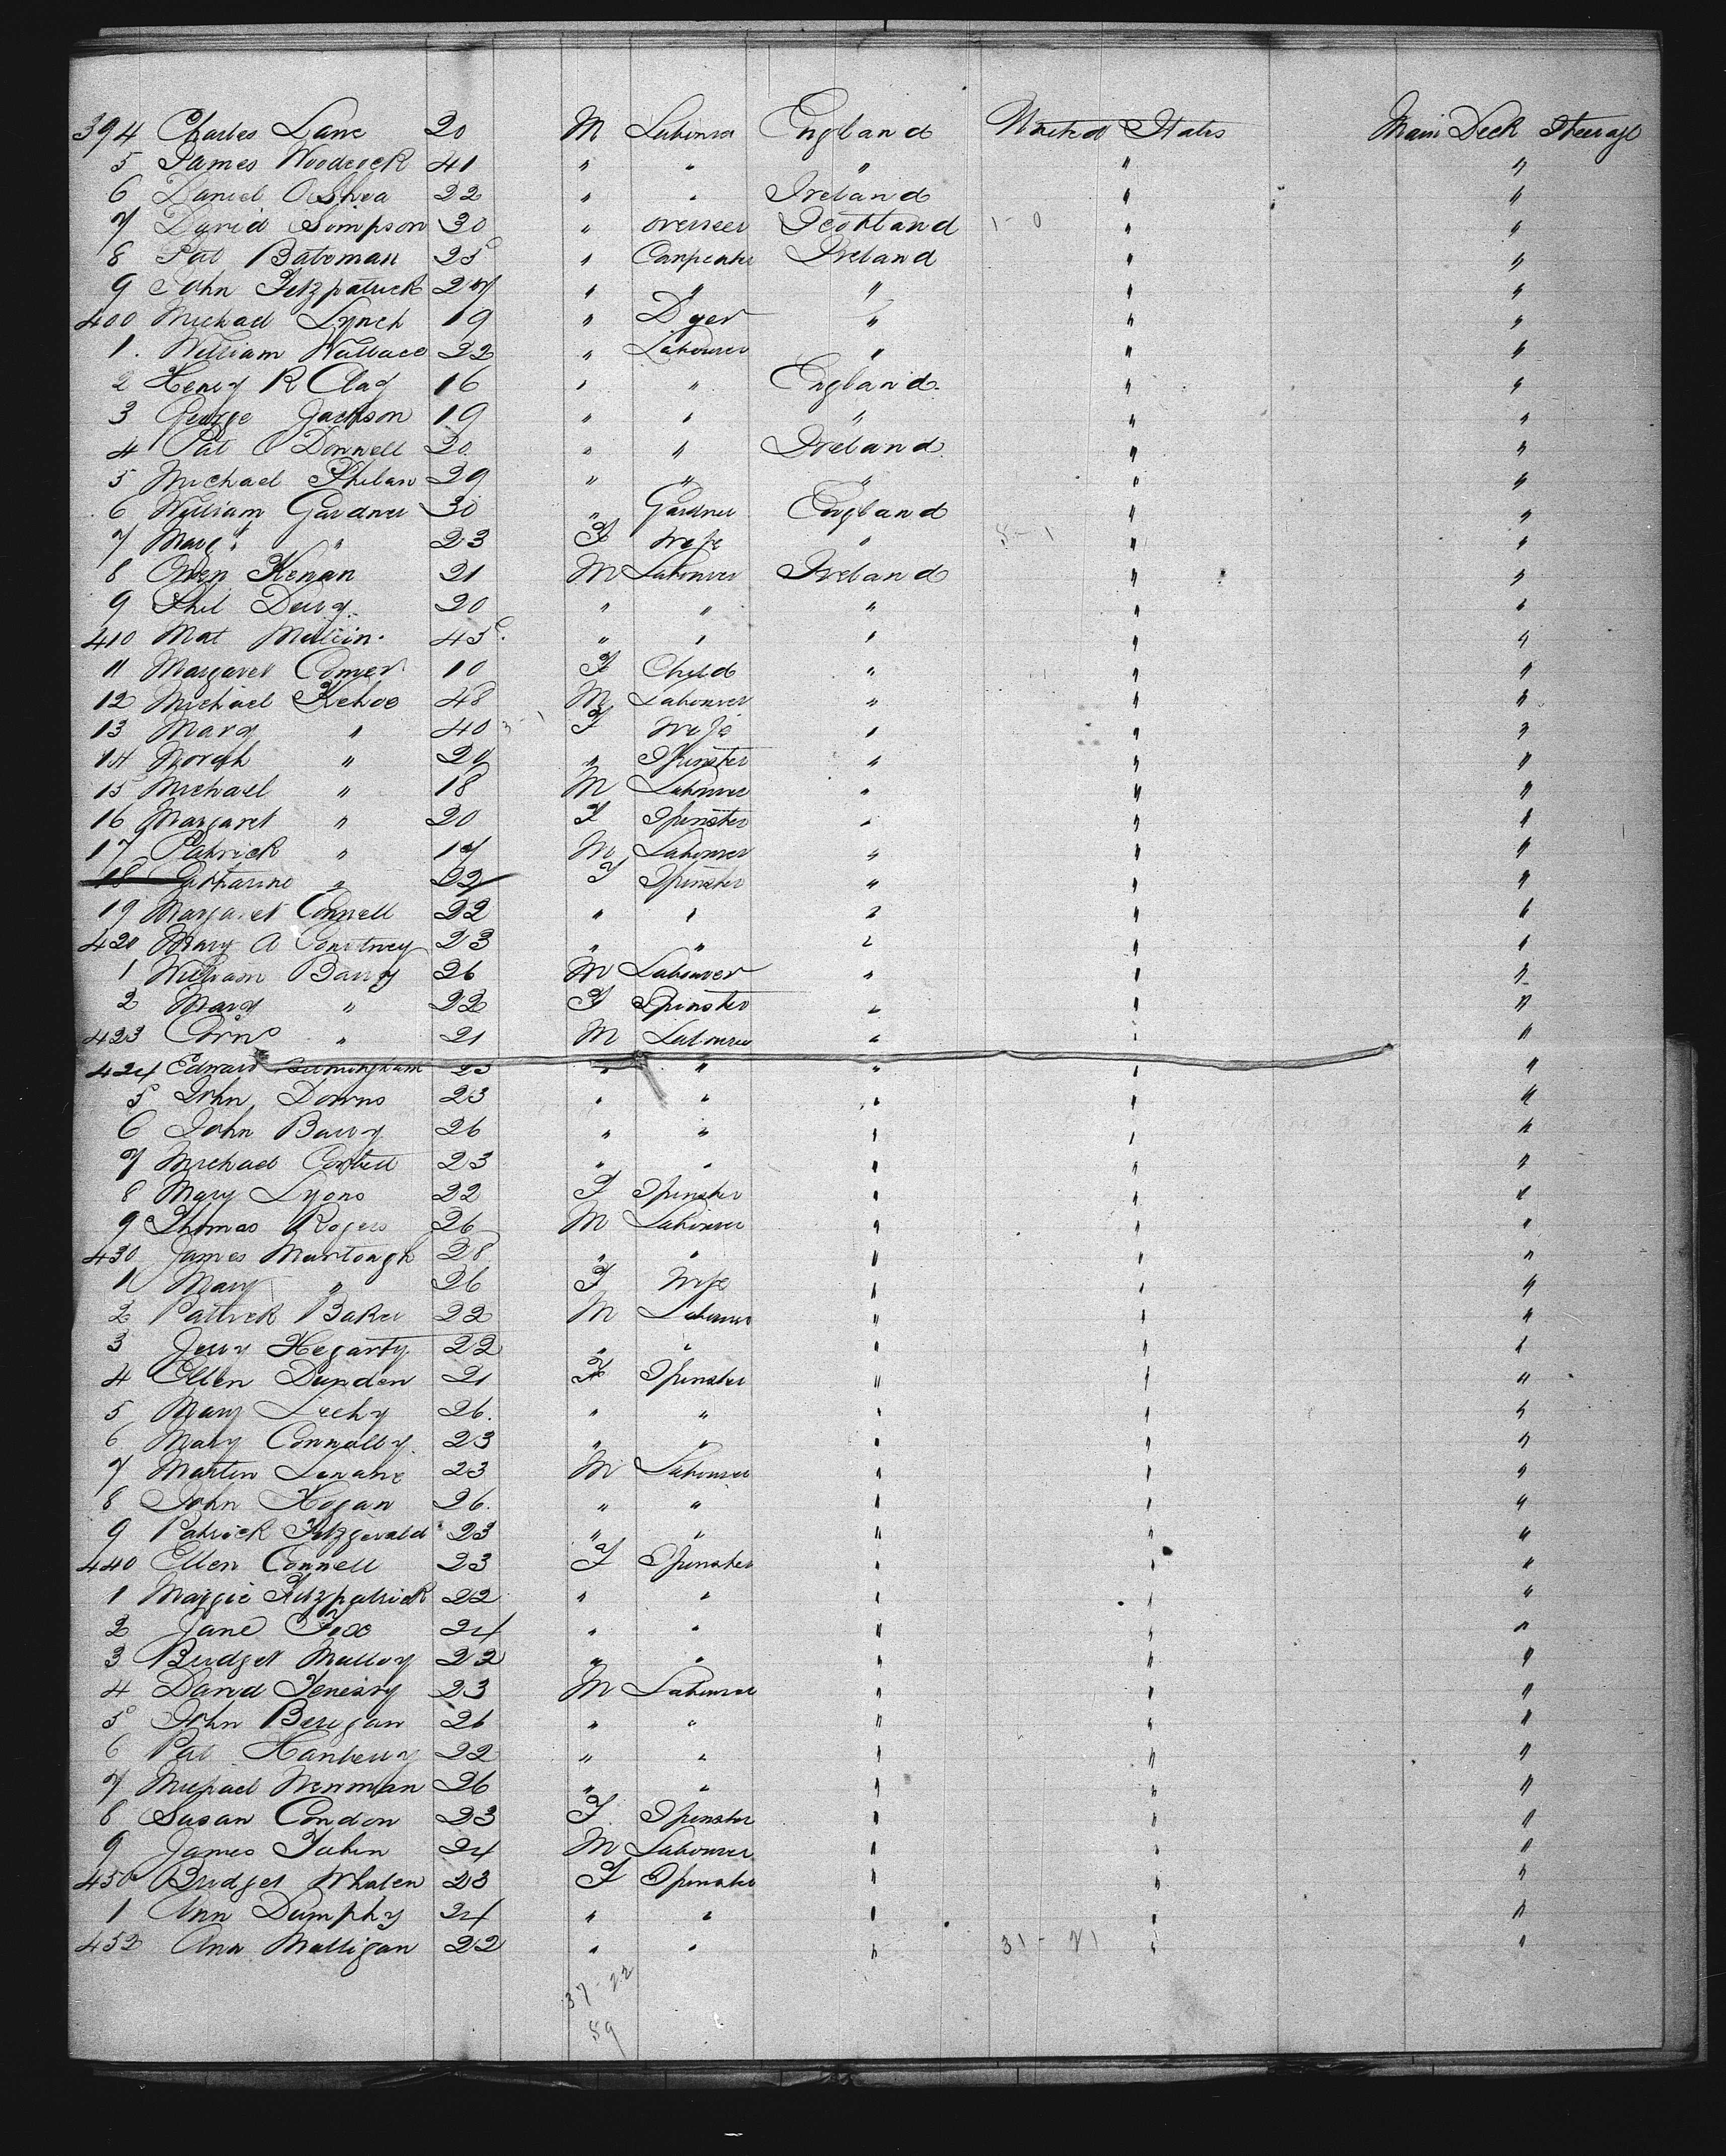 394 Charles Lane 20 M Labourer England United States Main Deck Steerage
5 James Woodcock 41 " " " " "
6 Daniel O Shea 22 " " Ireland " "
7 David Simpson 30 " overseer Scotland 1-0 " "
8 Pat Bateman 25 " Carpenter Ireland " "
9 John Fitzpatrick 27 " " " " "
400 Michael Lynch 19 " Dyer " " "
1. William Wallace 22 " Labourer " " "
2 Henry R Clay 16 " " England. " "
3 George Jackson 19 " " " " "
4 Pat O Donnell 20 " " Ireland " "
5 Michael Phelan 29 " " " " "
6 William Gardner 30 " Gardner England " "
7 Marg't " 23 F Wife " 5-1 " "
8 Owen Kenan 21 M Labourer Ireland " "
9 Phil 20 " " " " "
410 Mat 45 " " " " "
11 Margaret Comer 10 F Child " " "
12 Michael Kehoe 48 M Labourer " " "
13 Mary " 40 3-1 F Wife " " "
14 Norah " " Spinster " " "
15 Michael " 18 M Labourer " " "
16 Margaret " 20 F Spinster " " "
17 Patrick " 17 M Labourer " " "
18 Catharine " 22 F Spinster " " "
19 Margaret Connell 22 " " " " "
420 Mary A Courtney 23 " " " " "
1 William Barry 26 M Labourer " " "
2 Mary " 22 F Spinster " " "
423 Corns " 21 M Labourer " " "
424 Edward Birmingham 23 " " " " "
5 John Downs 23 " " " " "
6 John Barry 26 " " " " "
7 Michael Corbett 23 " " " " "
8 Mary Lyons 22 F Spinster " " "
9 Thomas Rogers 26 M Labourer " " "
430 James Murtough 28 " " " " "
1 Mary " 26 F Wife " " "
2 Patrick Baker 22 M Labourer " " "
3 Jerry Hegarty 22 " " " " "
4 Ellen Dundon 21 F Spinster " " "
5 Mary Leehy 26. " " " " "
6 Mary Connolly 23 " " " " "
7 Martin Lenahe 23 M Labourer " " "
8 John Hogan 26. " " " " "
9 Patrick Fitzgerald 23 " " " " "
440 Ellen Connell 23 F Spinster " " "
1 Maggie Fitzpatrick 22 " " " " "
2 Jane Fox 24 " " " " "
3 Bridget Malloy 22 " " " " "
4 David 23 M Labourer " " "
5 John Berigan 26 " " " " "
6 Pat Hanberry 22 " " " " "
7 Michael Newman 26 " " " " "
8 Susan Condon 23 F Spinster " " "
9 James Tobin 24 M Labourer " " "
450 Bridget Whalen 23 F Spinster " " "
1 Ann Dumphy 24 " " " " "
452 Ann Mulligan 22 " " " 31-21 " "
37-22
59